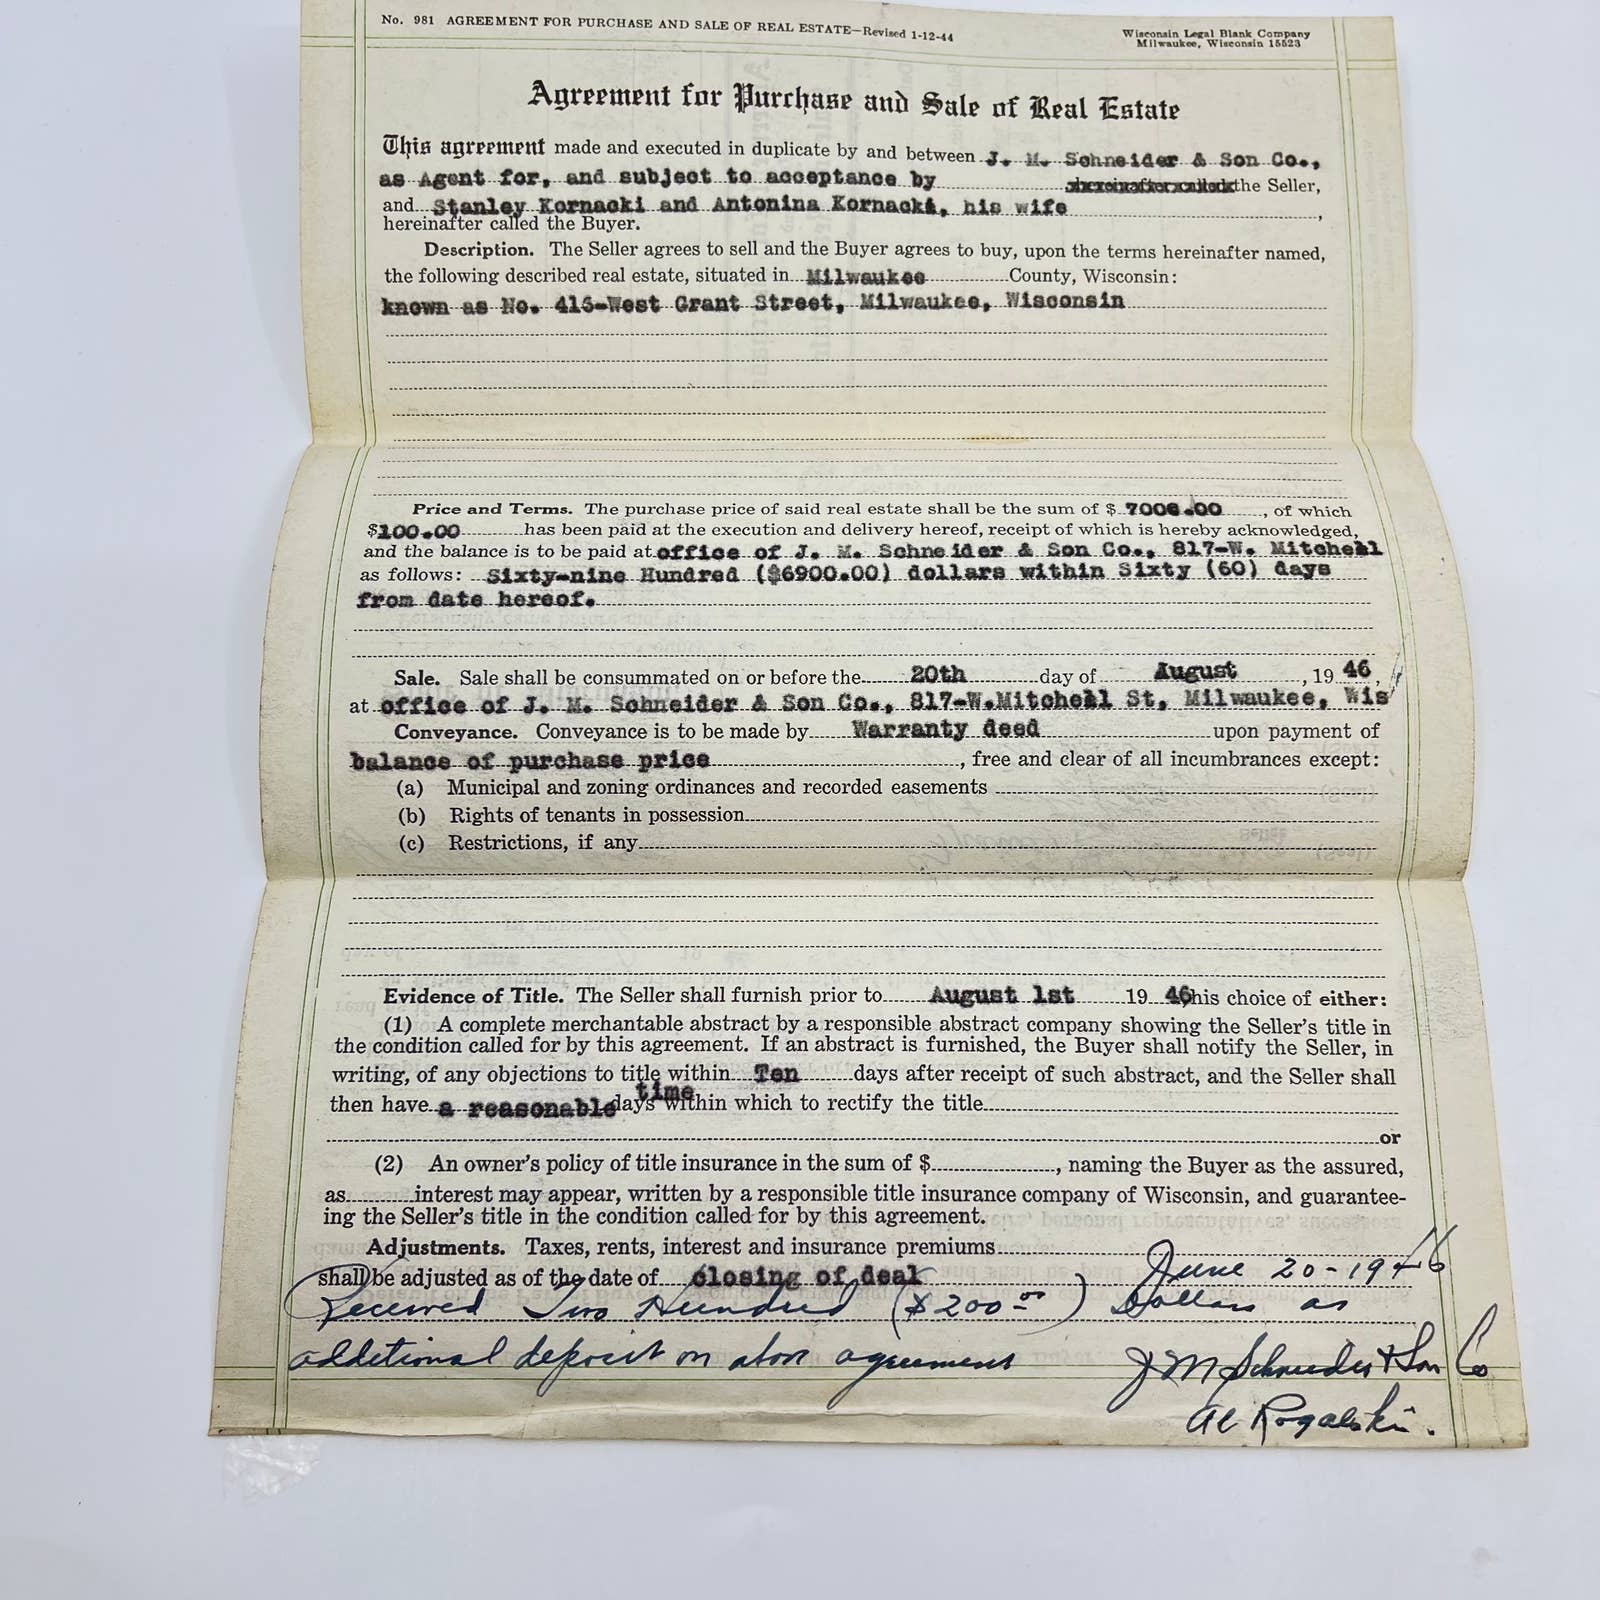 No. 981 AGREEMENT FOR PURCHASE AND SALE OF REAL ESTATE—Revised 1-12-44
Wisconsin Legal Blank Company
Milwaukee, Wisconsin 15523
Agreement for Purchase and Sale of Real Estate
This agreement made and executed in duplicate by and between J. M. Schneider & Son Co.,
as Agent for, and subject to acceptance by the Seller,
and Stanley Kornacki and Antonina Kornacki, his wife,
hereinafter called the Buyer.
Description. The Seller agrees to sell and the Buyer agrees to buy, upon the terms hereinafter named,
the following described real estate, situated in Milwaukee County, Wisconsin:
known as No. 415-West Grant Street, Milwaukee, Wisconsin
Price and Terms. The purchase price of said real estate shall be the sum of $ 7000.00, of which
$100.00 has been paid at the execution and delivery hereof, receipt of which is hereby acknowledged,
and the balance is to be paid at office of J. M. Schneider & Son Co., 817-W. Mitchell
as follows: Sixty-nine Hundred ($6900.00) dollars within Sixty (60) days
from date hereof.
Sale. Sale shall be consummated on or before the 20th day of August, 19 46,
at office of J. M. Schneider & Son Co., 817-W.Mitchell St, Milwaukee, Wis
Conveyance. Conveyance is to be made by Warranty deed upon payment of
balance of purchase price, free and clear of all incumbrances except:
(a) Municipal and zoning ordinances and recorded easements
(b) Rights of tenants in possession
(c) Restrictions, if any
Evidence of Title. The Seller shall furnish prior to August 1st 19 46, his choice of either:
(1) A complete merchantable abstract by a responsible abstract company showing the Seller's title in
the condition called for by this agreement. If an abstract is furnished, the Buyer shall notify the Seller, in
writing, of any objections to title within Ten days after receipt of such abstract, and the Seller shall
time
then have a reasonable days within which to rectify the title
or
(2) An owner's policy of title insurance in the sum of $, naming the Buyer as the assured,
as interest may appear, written by a responsible title insurance company of Wisconsin, and guarantee-
ing the Seller's title in the condition called for by this agreement.
Adjustments. Taxes, rents, interest and insurance premiums
shall be adjusted as of the date of closing of deal
June 20-1946
Received Two Hundred ($200 00) Dollars as
additional deposit on above agreement
J M Schneider & Son Co
Al Rogalski.